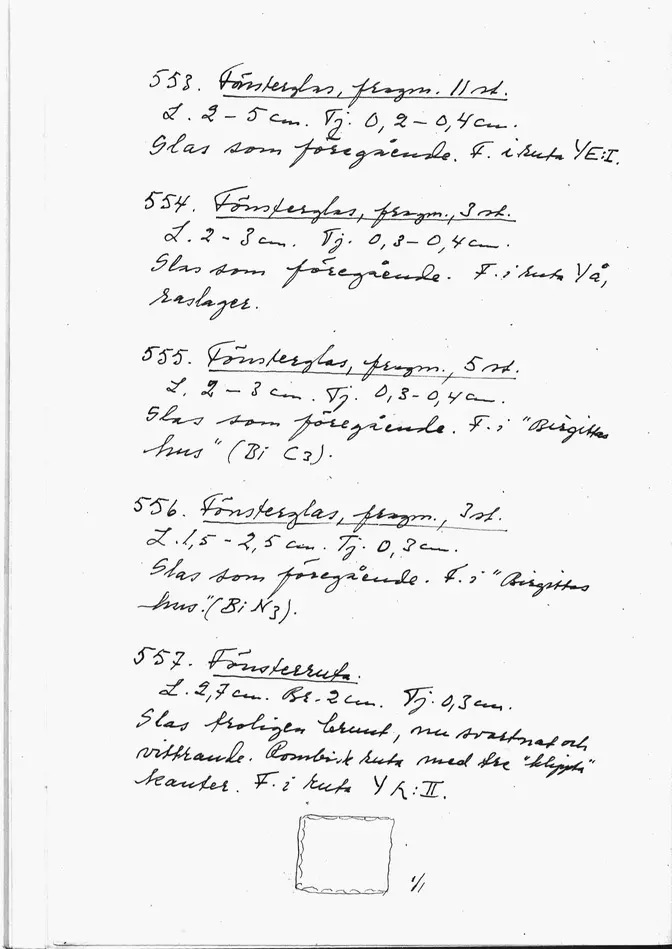 553. Fönsterglas, fragm. 11 st.
L. 2 – 5 cm. Tj. 0,2 – 0,4 cm.
Glas som föregående. F. i ruta YE:I.
554. Fönsterglas, fragm., 3 st.
L. 2 - 3 cm. Tj. 0,3 – 0,4 cm.
Glas som föregående. F. i ruta Yå,
raslager.
555. Fönsterglas, fragm., 5 st.
L. 2 – 3 cm. Tj. 0,3 - 0,4 cm.
Glas som föregående. F. i "Birgittas
hus" (Bi C3).
556. Fönsterglas, fragm., 3 st.
L. 1,5 – 2,5 cm. Tj. 0,3 cm.
Glas som föregående. F. i "Birgittas
hus." (Bi N3).
557. Fönsterruta.
L. 2,7 cm. Br. 2 cm. Tj. 0,3 cm.
Glas troligen brunt, nu svartnat och
vittrande. Rombisk ruta med tre "klippta"
kanter. F. i ruta Y :II.
1/1